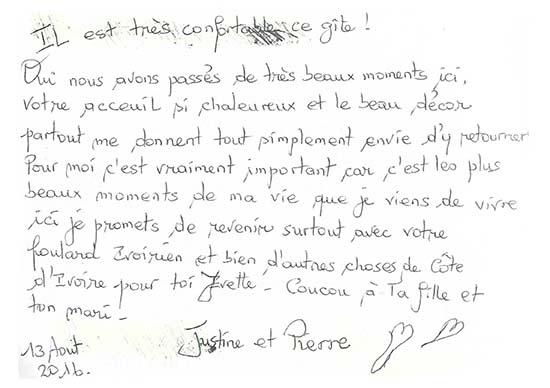 IL est très confortable ce gîte !
Oui nous avons passés de très beaux moments ici,
votre acceuil si chaleureux et le beau décor
partout me donnent tout simplement envie d'y retourner
Pour moi c'est vraiment important car c'est les plus
beaux moments de ma vie que je viens de vivre
ici je promets de revenir surtout avec votre
foulard Ivoirien et bien d'autres choses de Côte
d'Ivoire pour toi Yvette - Coucou à Ta fille et
ton mari -
Justine et Pierre
13 Août
2016.